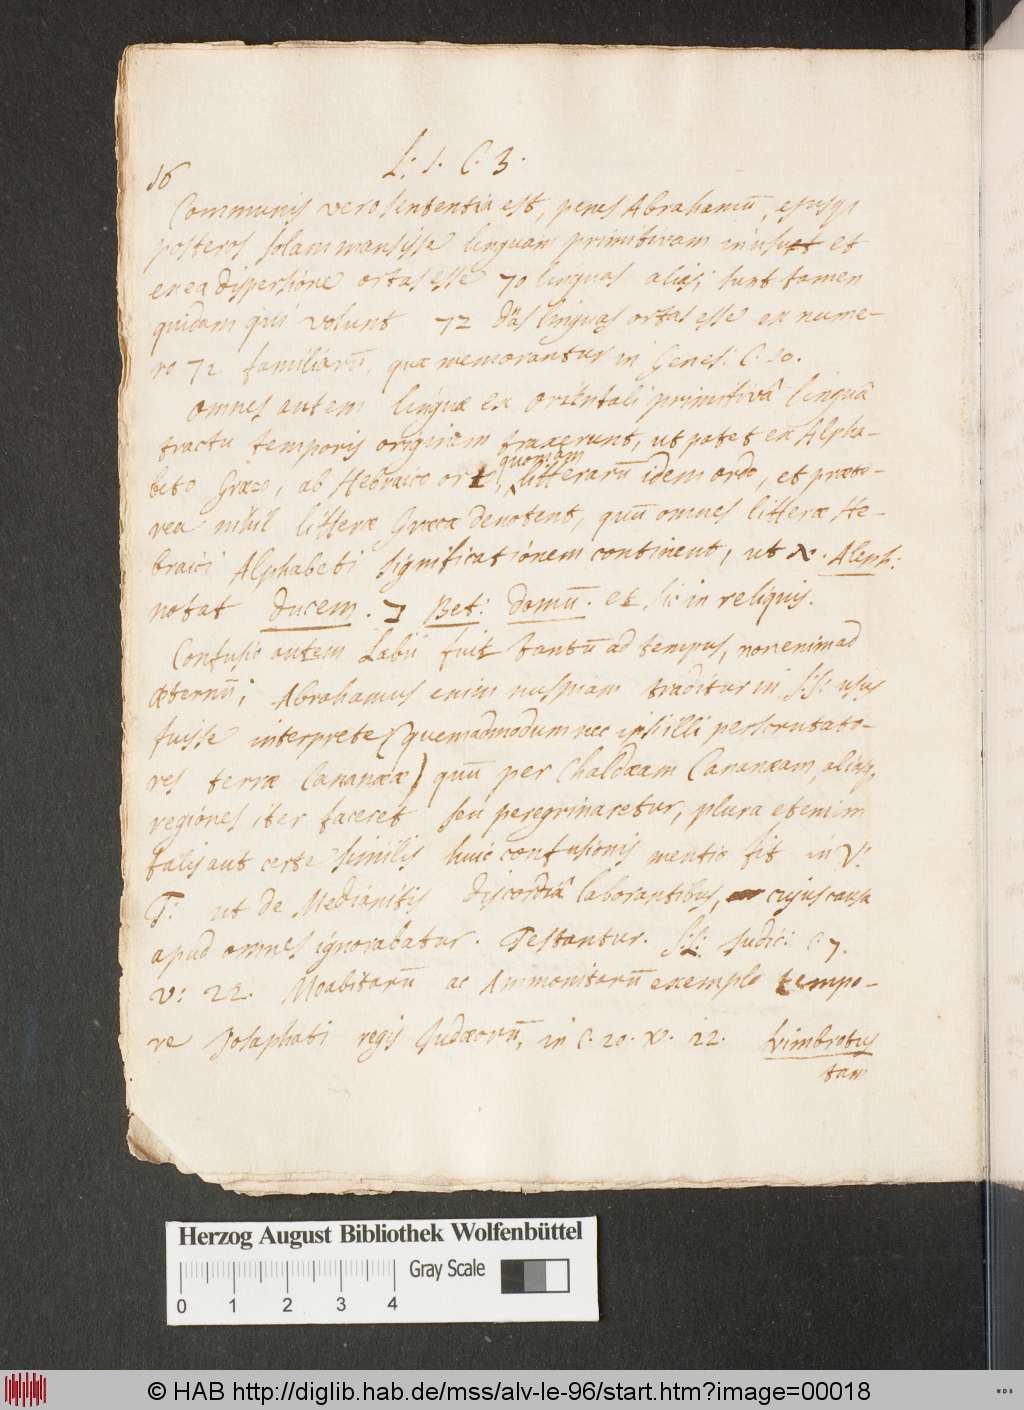 16
L: 1. C. 3.
Communis vero sententia est, penes Abrahamū, ejusq;
posteros solam mansisse linguam primitivam in usu et
ex ea dispersione ortas esse 70 linguas alias; sunt tamen
quidam qui volunt 72 linguas ortas esse ex nume-
ro 72 familiarū, quæ memorantur in Genes: C. 10.
omnes autem linguæ ex orientali primitivâ linguâ
tractu temporis originem traxerunt, ut patet ex Alpha-
quoniam
beto Græco, ab Hebraico orto, litterarū idem ordo, et præte-
rea nihil litteræ Græcæ denotent, quū omnes litteræ He-
braici Alphabeti significationem continent, ut א. Aleph:
notat ducem. ב Bet: domū. et sic in reliquis.
Confusio autem Labii fuit tantū ad tempus, non enim ad
æternū; Abrahamus enim nuspiam traditur in S.S: usus
fuisse interprete (quemadmodum nec ipsi illi perscrutato-
res terræ Cananææ) quū per Chaldæam Cananæam, aliasq;
regiones iter faceret seu peregrinaretur, plura etenim
talis aut certe similis huic confusionis mentio fit in V:
T: ut de Medianitis discordiâ laborantibus, cujus causa
apud omnes ignorabatur. Testantur. Judic: C. 7.
V: 22. Moabitarū ac Ammonitarū exemplo tempo-
re Josaphati regis Judæorū, in C. 20. V. 22. Nimbrotus
tam
Herzog August Bibliothek Wolfenbüttel
Gray Scale
0 1 2 3 4
© HAB http://diglib.hab.de/mss/alv-le-96/start.htm?image=00018